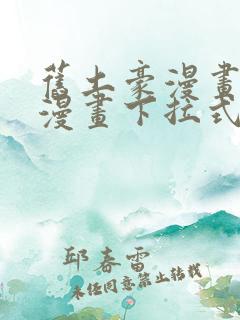 舊土豪漫畫
漫畫下拉式
邱春雷
未經同意禁止轉載